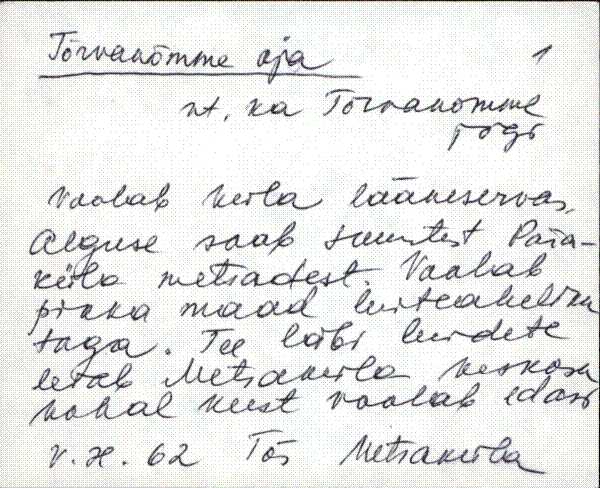 Tõrvanõmme oja 1
vt. ka Tõrvanõmme
jõgi
Voolab küla lääneservas,
Alguse saab suurtest Paia-
küla metsadest. Voolab
pikka maad luiteaheliku
taga. Tee läbi luidete
leiab Metsaküla keskosa
kohal kust voolab edasi
V. H. 62 Tõs Metsaküla